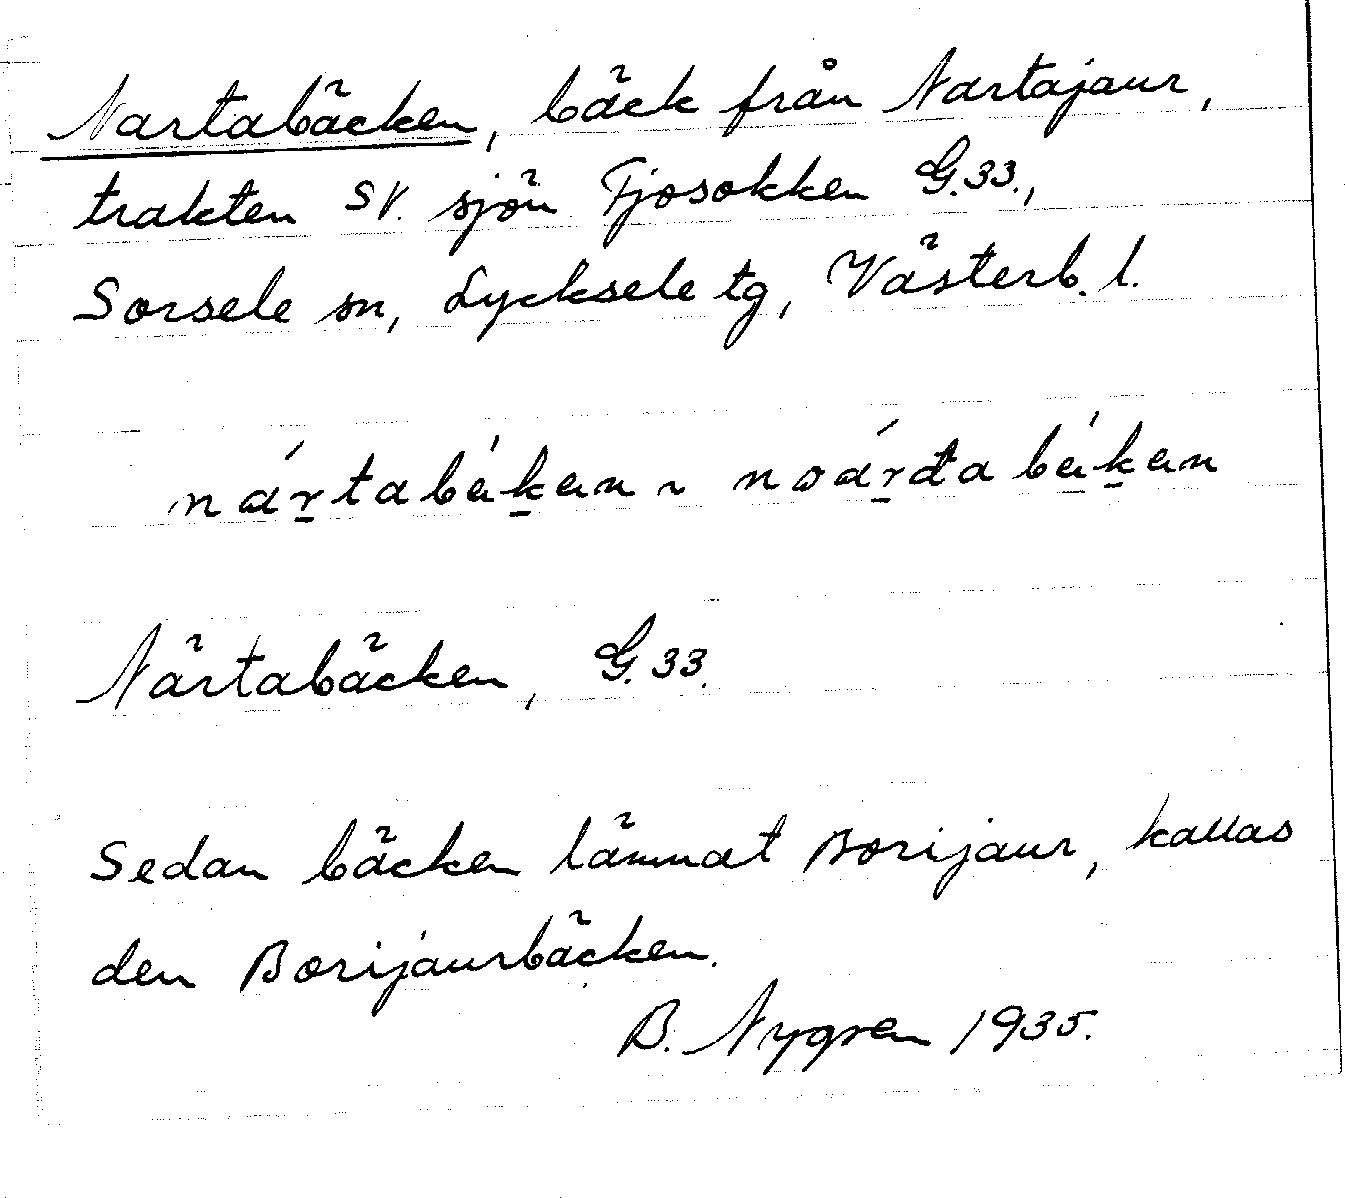 Nartabäcken, bäck från Nartajaur,
trakten SV. sjön Tjosokken G.33.,
Sorsele sn, Lycksele tg, Västerb. l.
nártabä́k̠än ~ noár̠đa bä́k̠än
Närtabäcken, G.33.
Sedan bäcken lämnat Borijaur, kallas
den Borijaurbäcken.
B. Nygren 1935.